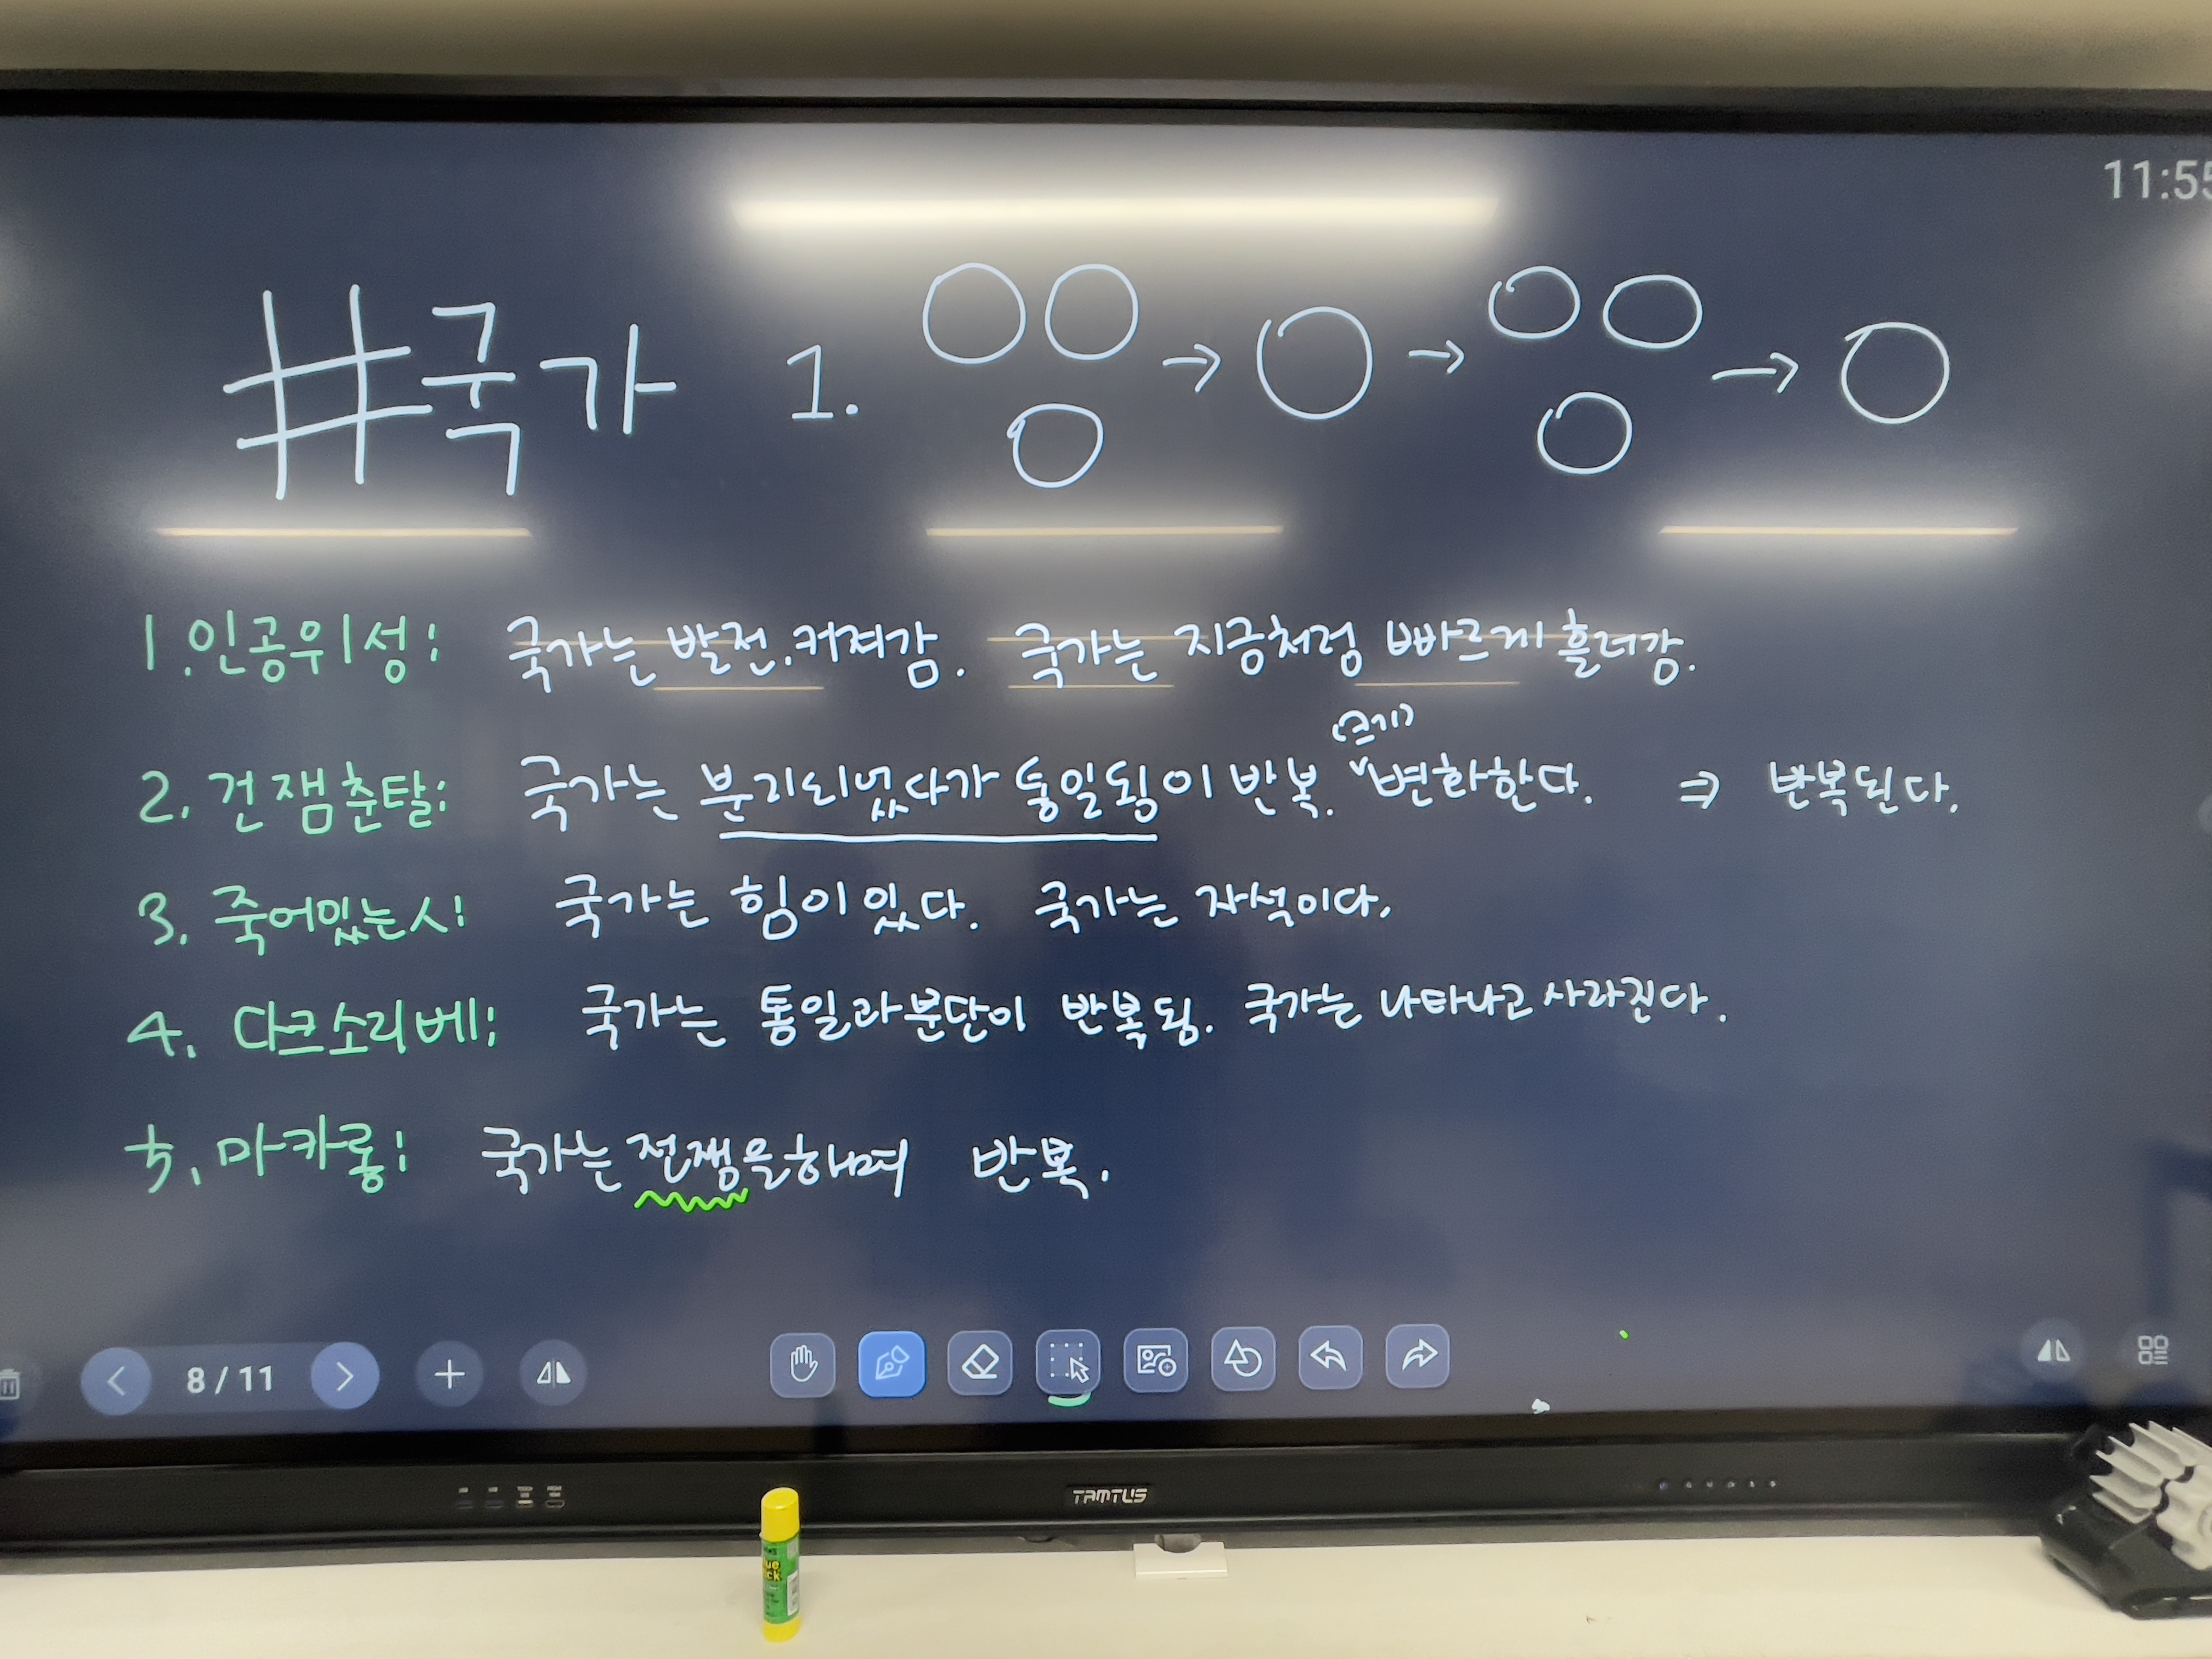 11:55
#국가 1. → → →
1. 인공위성: 국가는 발전. 커져감. 국가는 지금처럼 빠르게 흘러감.
(크기)
2. 건잼춘탈: 국가는 분리되었다가 통일됨이 반복. ˅변화한다. ⇒ 반복된다.
3. 죽어있는시: 국가는 힘이 있다. 국가는 자석이다.
4. 다크소리베: 국가는 통일과 분단이 반복됨. 국가는 나타나고 사라진다.
5. 마카롱: 국가는 전쟁을하며 반복.
8 / 11
TAMTUS